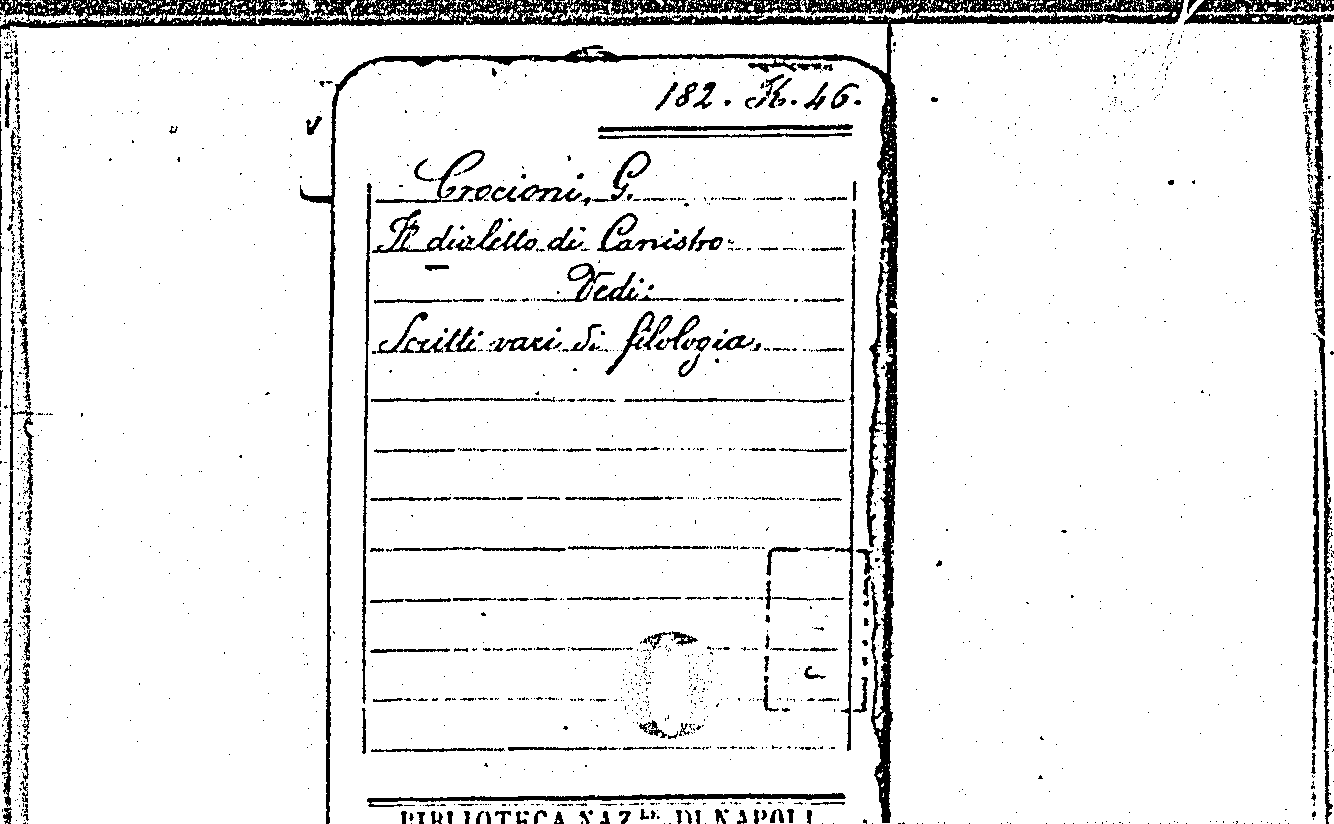 182. K. 46.
Crocioni, G.
Il dialetto di Canistro
Vedi:
Scritti vari di filologia.
BIBLIOTECA NAZ.LE DI NAPOLI